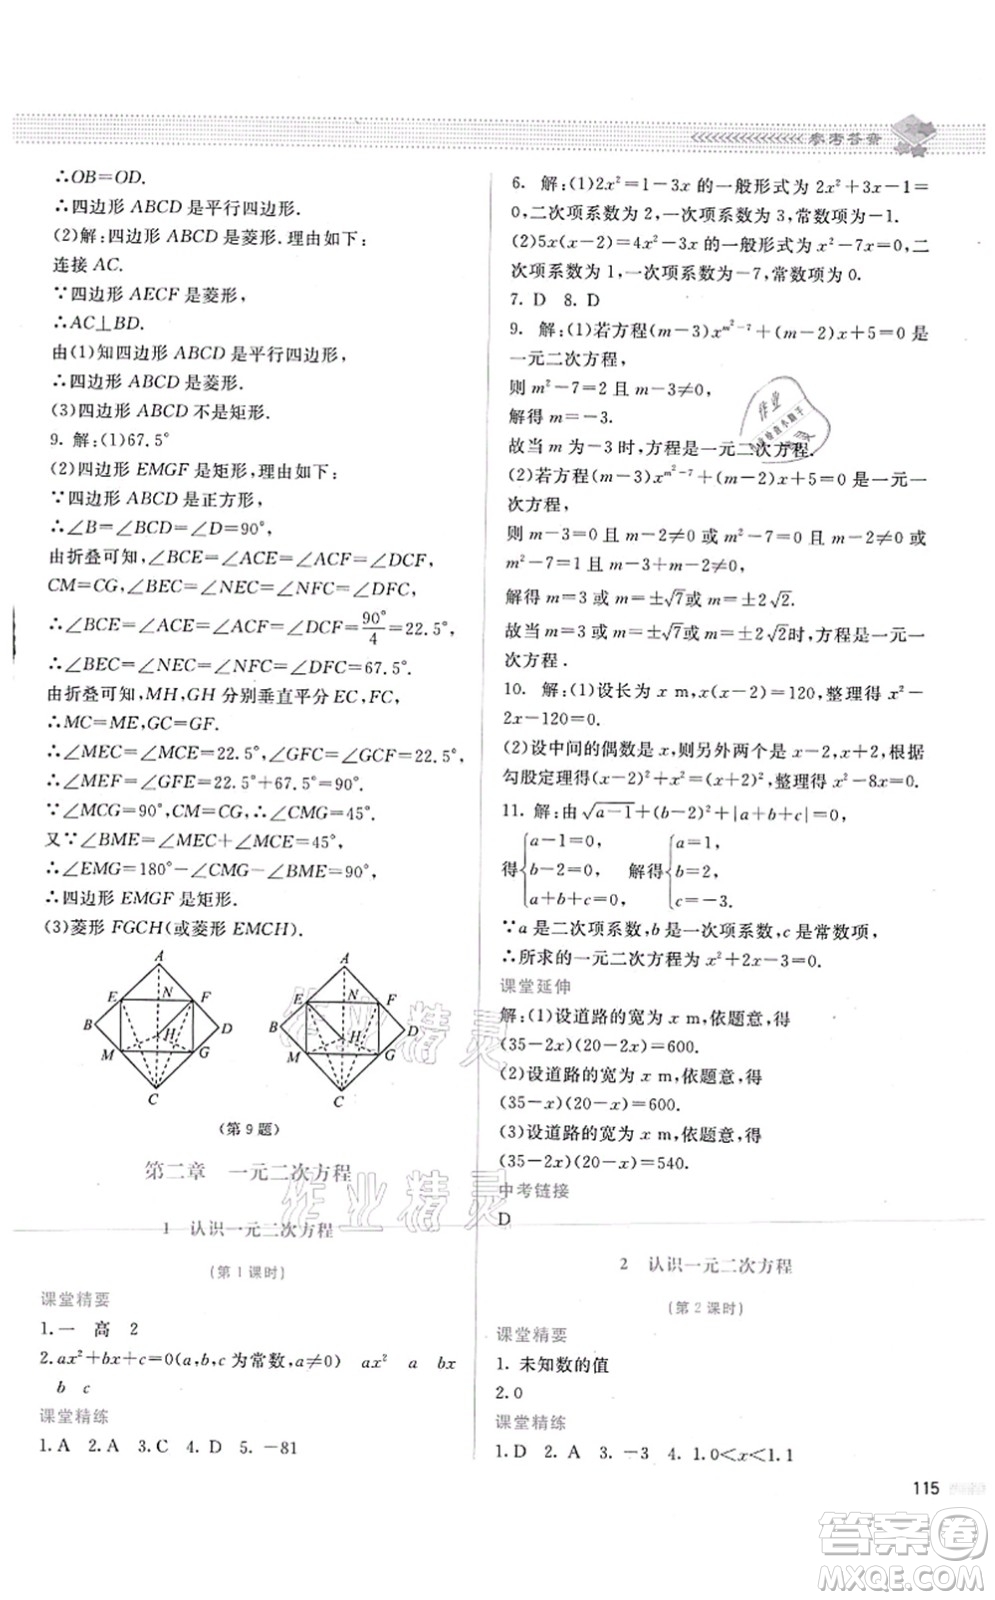 参考答案
∴OB=OD.
∴四边形 ABCD 是平行四边形.
(2)解:四边形 ABCD 是菱形.理由如下:
连接 AC.
∵四边形 AECF 是菱形,
∴AC⊥BD.
由(1)知四边形 ABCD 是平行四边形,
∴四边形 ABCD 是菱形.
(3)四边形 ABCD 不是矩形.
9. 解:(1)67.5°
(2)四边形 EMGF 是矩形,理由如下:
∵四边形 ABCD 是正方形,
∴∠B=∠BCD=∠D=90°,
由折叠可知,∠BCE=∠ACE=∠ACF=∠DCF,
CM=CG,∠BEC=∠NEC=∠NFC=∠DFC,
∴∠BCE=∠ACE=∠ACF=∠DCF=90°/4=22.5°,
∴∠BEC=∠NEC=∠NFC=∠DFC=67.5°.
由折叠可知,MH,GH 分别垂直平分 EC,FC,
∴MC=ME,GC=GF.
∴∠MEC=∠MCE=22.5°,∠GFC=∠GCF=22.5°.
∴∠MEF=∠GFE=22.5°+67.5°=90°,
∵∠MCG=90°,CM=CG,∴∠CMG=45°.
又∵∠BME=∠MEC+∠MCE=45°,
∴∠EMG=180°-∠CMG-∠BME=90°,
∴四边形 EMGF 是矩形.
(3)菱形 FGCH(或菱形 EMCH).
A E N F B D H M G C
A E N F B D H M G C
(第 9 题)
第二章 一元二次方程
1 认识一元二次方程
(第 1 课时)
课堂精要
1.一 高 2
2.ax²+bx+c=0(a,b,c 为常数,a≠0) ax² a bx
b c
课堂精练
1.A 2.A 3.C 4.D 5.-81
6. 解:(1)2x²=1-3x 的一般形式为 2x²+3x-1=
0,二次项系数为 2,一次项系数为 3,常数项为-1.
(2)5x(x-2)=4x²-3x 的一般形式为 x²-7x=0,二
次项系数为 1,一次项系数为-7,常数项为 0.
7. D 8. D
9. 解:(1)若方程(m-3)x^{m²-7}+(m-2)x+5=0 是
一元二次方程,
则 m²-7=2 且 m-3≠0,
解得 m=-3.
故当 m 为-3 时,方程是一元二次方程.
(2)若方程(m-3)x^{m²-7}+(m-2)x+5=0 是一元一
次方程,
则 m-3=0 且 m-2≠0 或 m²-7=0 且 m-2≠0 或
m²-7=1 且 m-3+m-2≠0,
解得 m=3 或 m=±√7或 m=±2√2.
故当 m=3 或 m=±√7或 m=±2√2时,方程是一元一
次方程.
10. 解:(1)设长为 x m,x(x-2)=120,整理得 x²-
2x-120=0.
(2)设中间的偶数是 x,则另外两个是 x-2,x+2,根据
勾股定理得(x-2)²+x²=(x+2)²,整理得 x²-8x=0.
11. 解:由 √(a-1)+(b-2)²+|a+b+c|=0,
得{a-1=0, b-2=0, a+b+c=0, 解得{a=1, b=2, c=-3.
∵a 是二次项系数,b 是一次项系数,c 是常数项,
∴所求的一元二次方程为 x²+2x-3=0.
课堂延伸
解:(1)设道路的宽为 x m,依题意,得
(35-2x)(20-2x)=600.
(2)设道路的宽为 x m,依题意,得
(35-x)(20-x)=600.
(3)设道路的宽为 x m,依题意,得
(35-2x)(20-x)=540.
中考链接
D
2 认识一元二次方程
(第 2 课时)
课堂精要
1. 未知数的值
2.0
课堂精练
1.D 2.A 3.-3 4.1.0<x<1.1
115
作业精灵
作业精灵
答案卷
MXQE.COM